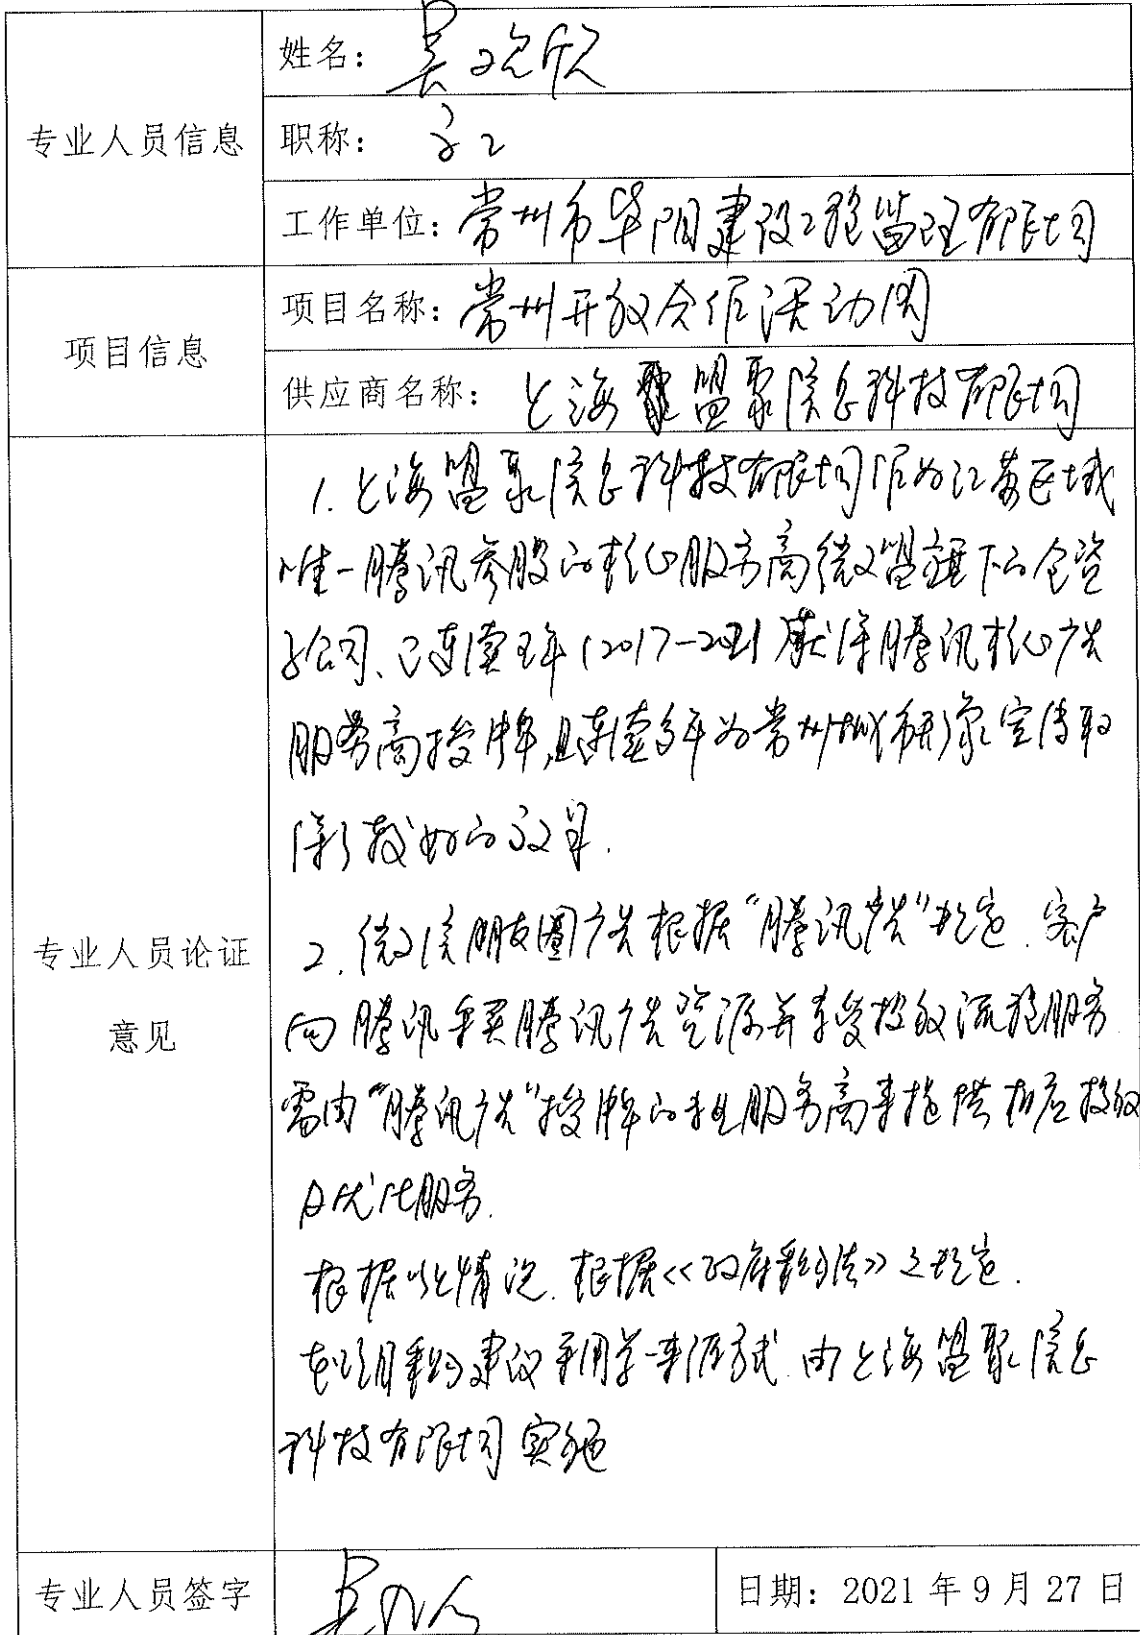 专业人员信息
姓名：吴观欣
职称：高工
工作单位：常州市华阳建设工程监理有限公司
项目信息
项目名称：常州开放合作活动周
供应商名称：上海盟聚信息科技有限公司
专业人员论证
意见
1. 上海盟聚信息科技有限公司作为江苏区域
唯一腾讯参股的核心服务商微盟旗下的全资
子公司、已连续五年(2017-2021获得腾讯核心广告
服务商授牌,且连续多年为常州城市形象宣传取
得了较好的效果.
2. 微信朋友圈广告根据"腾讯广告"规定.客户
向腾讯采买腾讯广告资源并享受投放流程服务
需由"腾讯广告"授牌的 服务商来提供相应投放
及优化服务.
根据以上情况.根据<<政府采购法>>之规定.
本项目采购建议采用单一来源方式.由上海盟聚信息
科技有限公司实施
专业人员签字
日期：2021 年 9 月 27 日